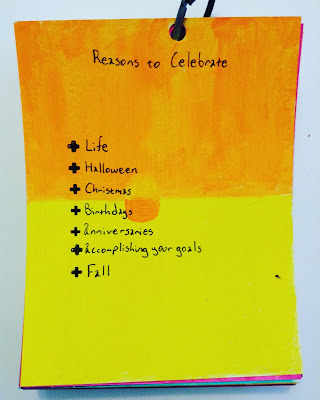 Reasons to Celebrate
+ Life
+ Halloween
+ Christmas
+ Birthdays
+ Anniversaries
+ Accomplishing your goals
+ Fall